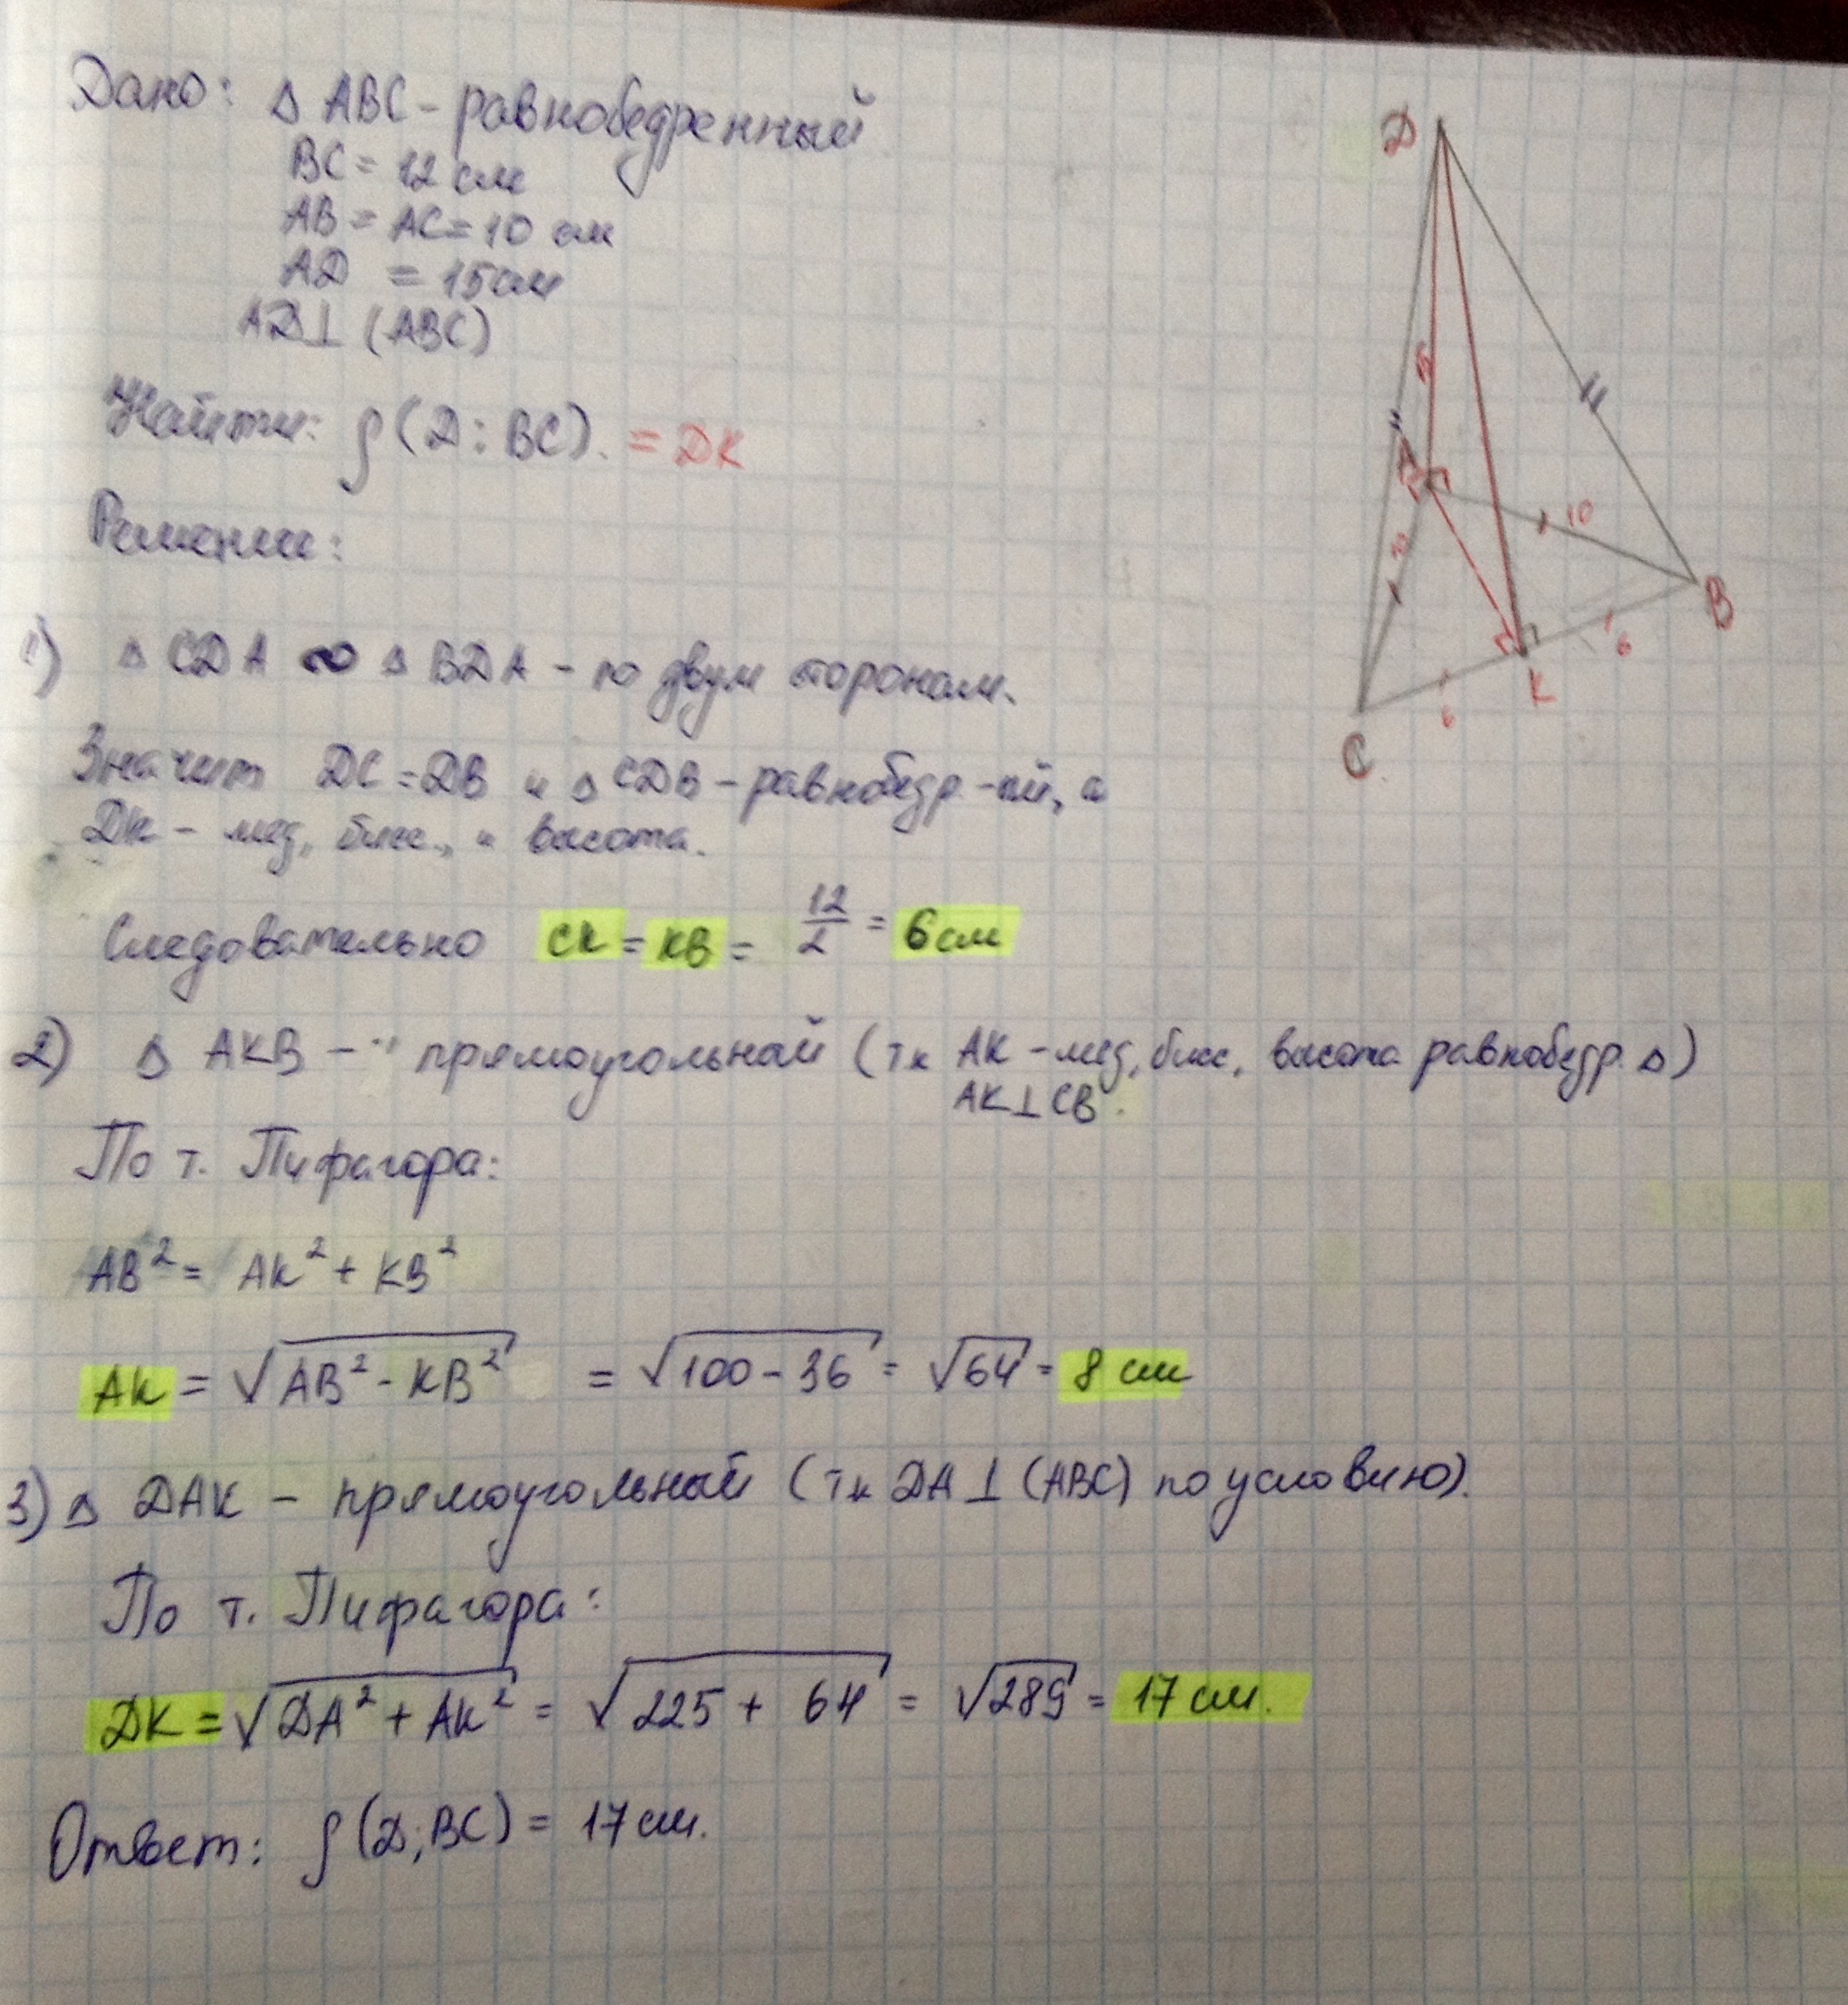 Дано: Δ ABC - равнобедренный
BC = 12 см
AB = AC = 10 см
AD = 15 см
AD ⊥ (ABC)
Найти: ρ(D: BC). = DK
Решение:
1) Δ CDA ∾ Δ BDA - по двум сторонам.
Значит DC = DB и Δ CDB - равнобедр-ый, а
DK - мед, бисс., и высота.
Следовательно CK = KB = 12/2 = 6 см
2) Δ AKB - прямоугольный (тк AK - мед, бисс, высота равнобедр. Δ)
AK ⊥ CB.
По т. Пифагора:
AB² = AK² + KB²
AK = √(AB² - KB²) = √(100 - 36) = √64 = 8 см
3) Δ DAK - прямоугольный (тк DA ⊥ (ABC) по условию).
По т. Пифагора:
DK = √(DA² + AK²) = √(225 + 64) = √289 = 17 см.
Ответ: ρ(D; BC) = 17 см.
D
A
10
B
6
K
6
C